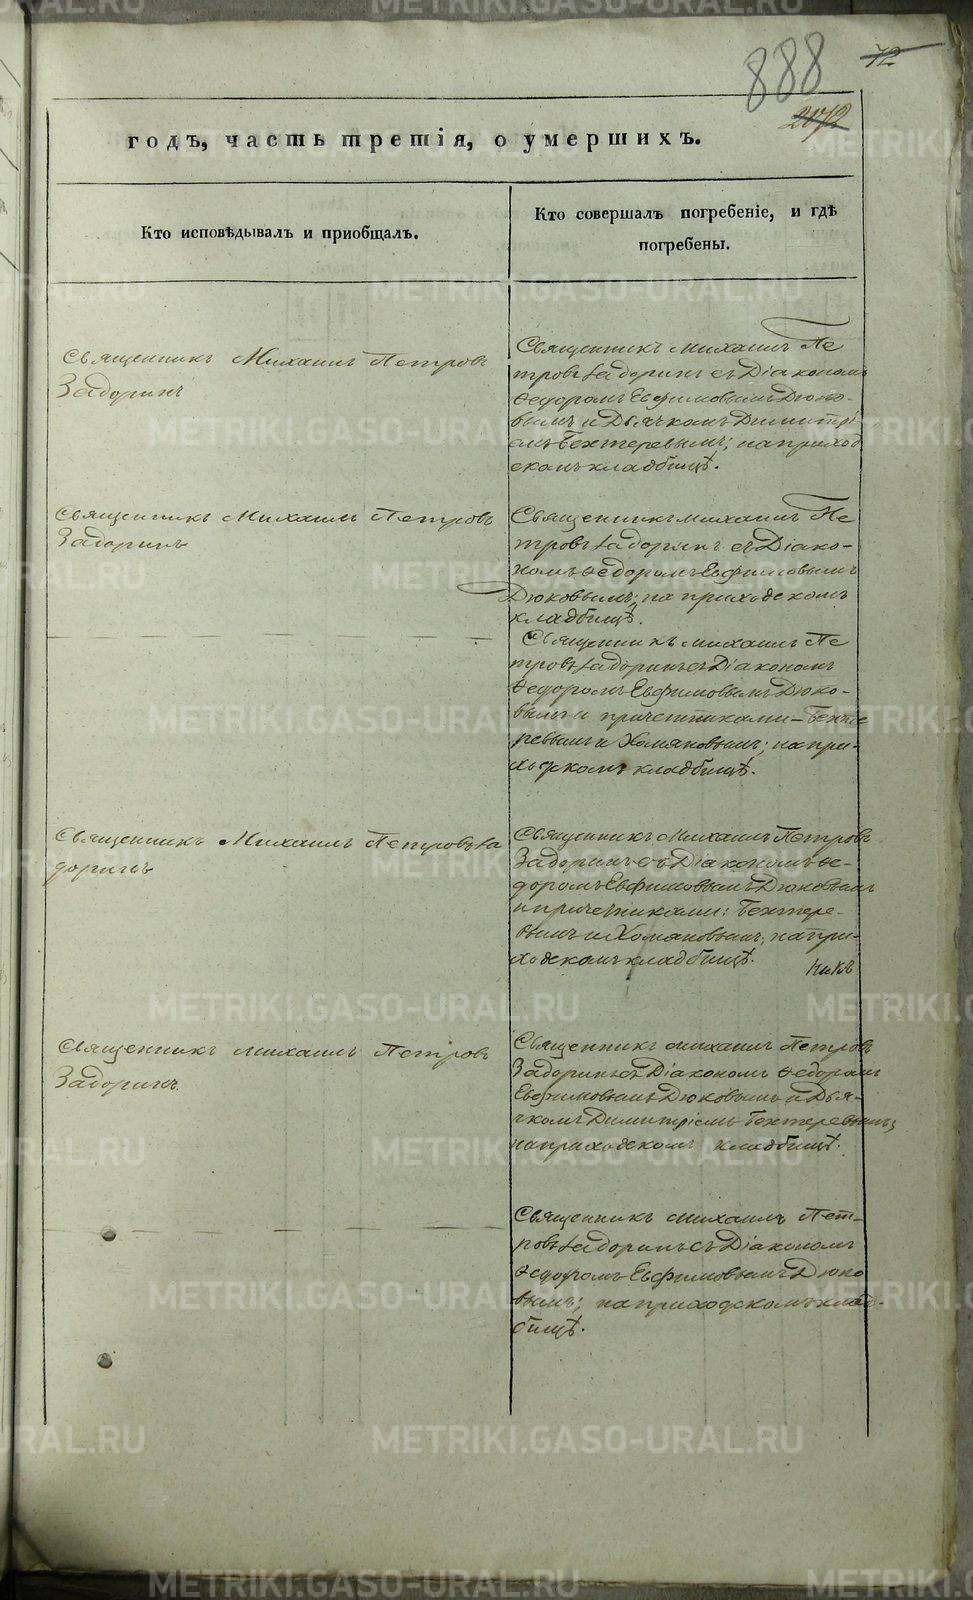 888
72
2072
годъ, часть третія, о умершихъ.
Кто исповѣдывалъ и приобщалъ.
Кто совершалъ погребеніе, и гдѣ
погребены.
Священникъ Михаилъ Петровъ
Задоринъ
Священникъ Михаилъ Пе
тровъ Задоринъ съ Діакономъ
Ѳедоромъ Евфимовымъ Дюко-
вымъ и Дьячкомъ Димитрі
емъ Бехтеревымъ; на приход
скомъ кладбищѣ.
Священникъ Михаилъ Петровъ
Задоринъ
Священникъ Михаилъ Пе
тровъ Задоринъ съ Діако-
номъ Ѳедоромъ Евфимовымъ
Дюковымъ; на приходскомъ
кладбищѣ.
Священникъ Михаилъ Пе
тровъ Задоринъ съ Діакономъ
Ѳедоромъ Евфимовымъ Дюко-
вымъ и причетниками - Бехте
ревымъ и Хомяковымъ; на при-
ходскомъ кладбищѣ.
Священникъ Михаилъ Петровъ За
доринъ
Священникъ Михаилъ Петровъ
Задоринъ съ Діакономъ Ѳе-
доромъ Евфимовымъ Дюковымъ
и причетниками: Бехтере-
вымъ и Хомяковымъ; на при-
ходскомъ кладбищѣ.
Священникъ Михаилъ Петровъ
Задоринъ.
Священникъ Михаилъ Петровъ
Задоринъ съ Діакономъ Ѳедоромъ
Евфимовымъ Дюковымъ и Дья-
чкомъ Димитріемъ Бехтеревымъ;
на приходскомъ кладбищѣ.
Священникъ Михаилъ Пет-
ровъ Задоринъ съ Діакономъ
Ѳедоромъ Евфимовымъ Дюко
вымъ; на приходскомъ клад-
бищѣ.
METRIKI.GASO-URAL.RU